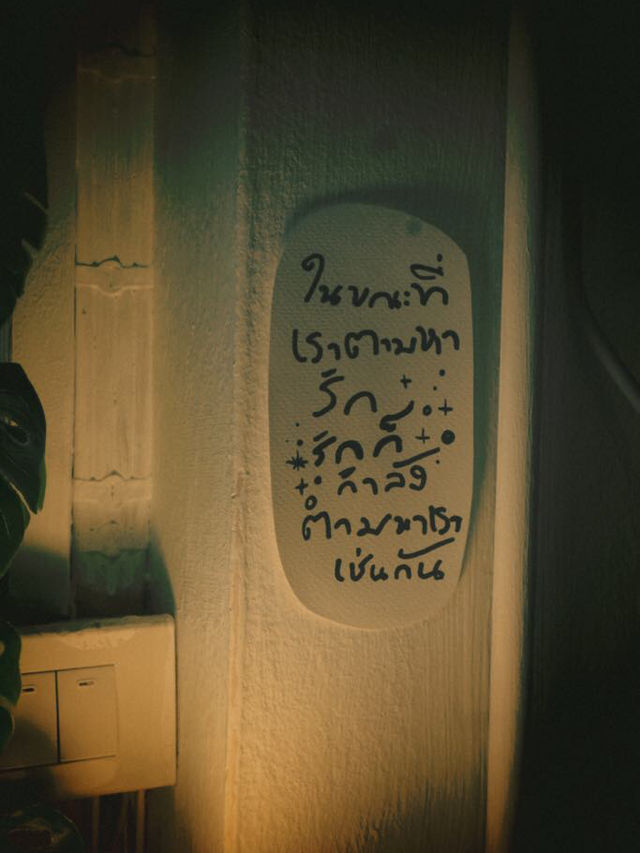 ในขณะที่
เราตามหา
รัก
รักก็
กำลัง
ตามหาเรา
เช่นกัน